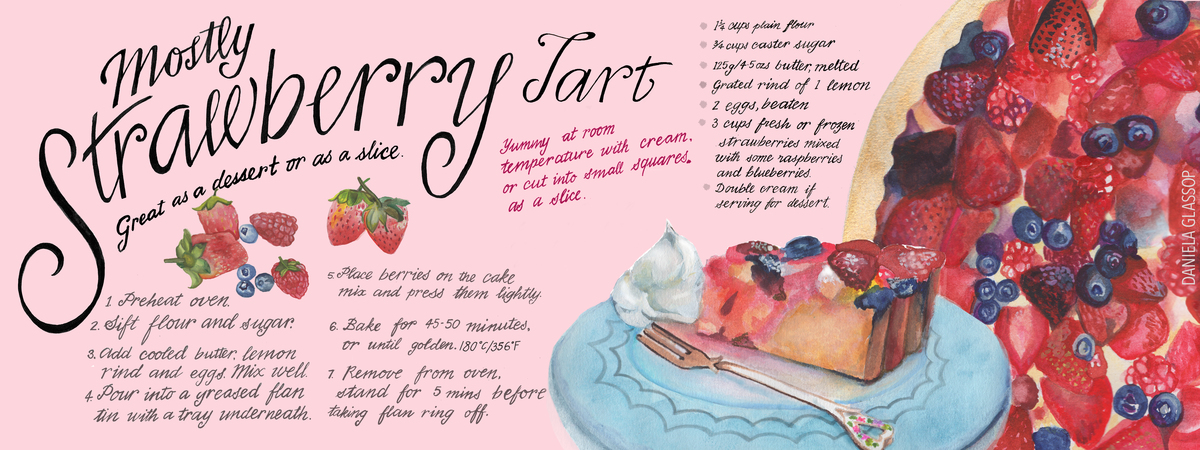 Mostly
Strawberry Tart
Great as a dessert or as a slice.
Yummy at room
temperature with cream.
or cut into small squares.
as a slice.
1¼ cups plain flour
¾ cups caster sugar
125g/4·5ozs butter, melted
Grated rind of 1 lemon
2 eggs, beaten
3 cups fresh or frozen
strawberries mixed
with some raspberries
and blueberries.
Double cream if
serving for dessert.
1. Preheat oven.
2. Sift flour and sugar.
3. Add cooled butter, lemon
rind and eggs. Mix well.
4. Pour into a greased flan
tin with a tray underneath.
5. Place berries on the cake
mix and press them lightly.
6. Bake for 45-50 minutes,
or until golden. 180°C/356°F
7. Remove from oven,
stand for 5 mins before
taking flan ring off.
DANIELA GLASSOP